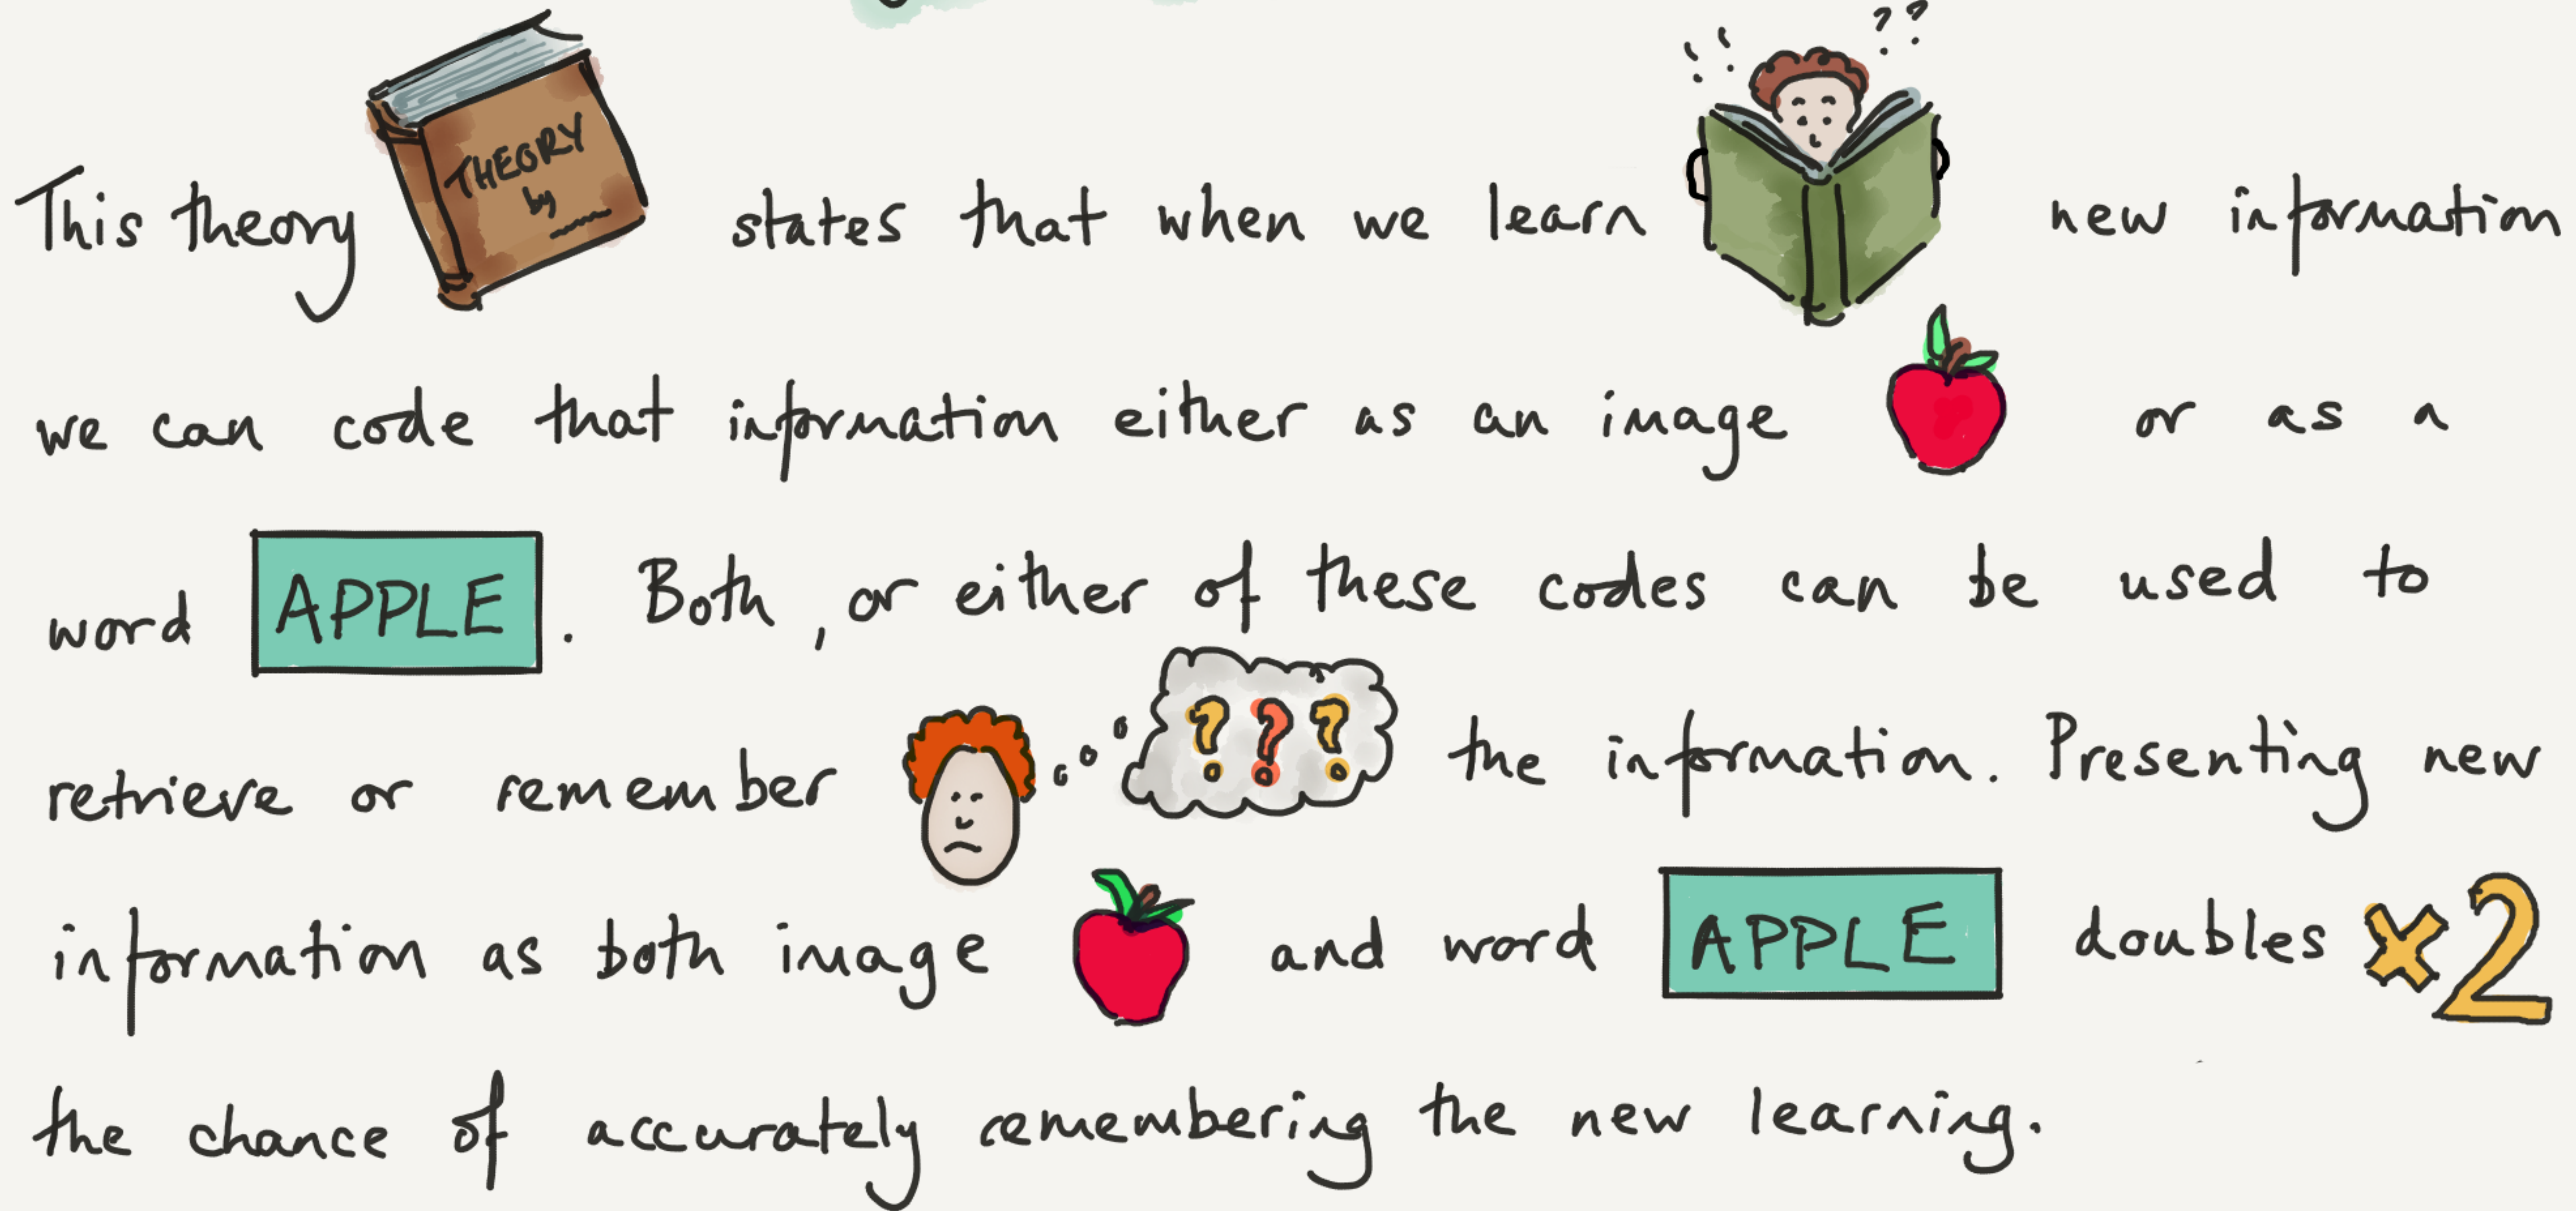 This theory THEORY by states that when we learn new information
we can code that information either as an image or as a
word APPLE. Both, or either of these codes can be used to
retrieve or remember ??? the information. Presenting new
information as both image and word APPLE doubles ×2
the chance of accurately remembering the new learning.